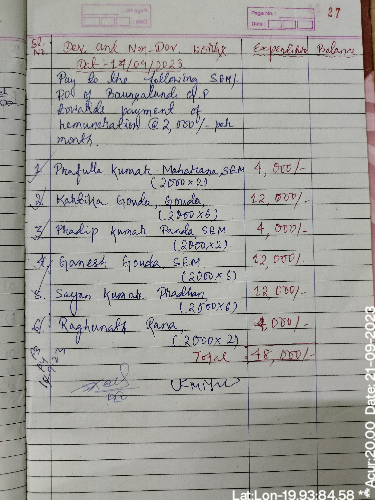 Page No.: 27
Date:
Sl No. Dev. and Non-Dev. works Expenditure Balance
Dt-14/09/2023
Pay to the following SEM/
of Baunsalundi G.P
towards payment of
remuneration @ 2,000/- per
month.
1/ Prafulla Kumar Maharana, SEM 4,000/-
(2000x2)
2/ Kartika Gouda, Gouda 12,000/-
(2000x6)
3/ Pradip Kumar Panda SEM 4,000/-
(2000x2)
4/ Ganesh Gouda SEM 12,000/-
(2000x6)
5. Sayan Kumar Pradhan, 12,000/-
(2000x6)
6/ Raghunath Rana, 4,000/-
(2000x2)
Total 48,000/-
Lat:Lon-19.93:84.58 ** Acur:20.00 Date: 21-09-2023